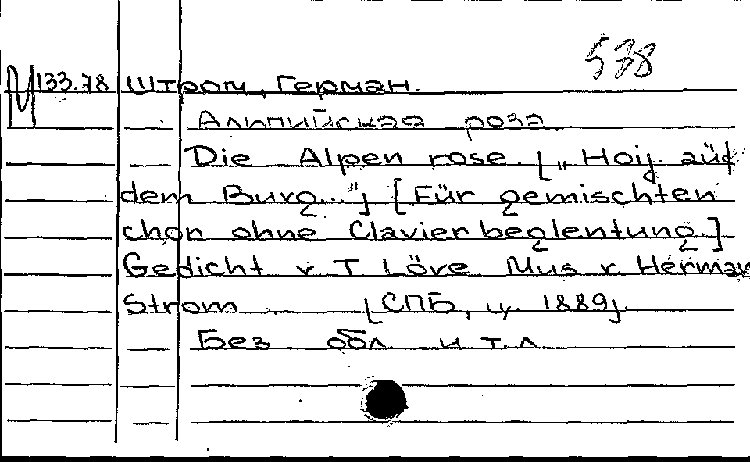 538
М 133.78 Штром, Герман.
Альпийская роза
Die Alpen rose. [„Hoij. auf
dem Burg..."] [Für gemischten
chon ohne Clavier beglentung.]
Gedicht v T Löve Mus v. Herman
Strom [СПБ, ц. 1889].
Без обл и т.л